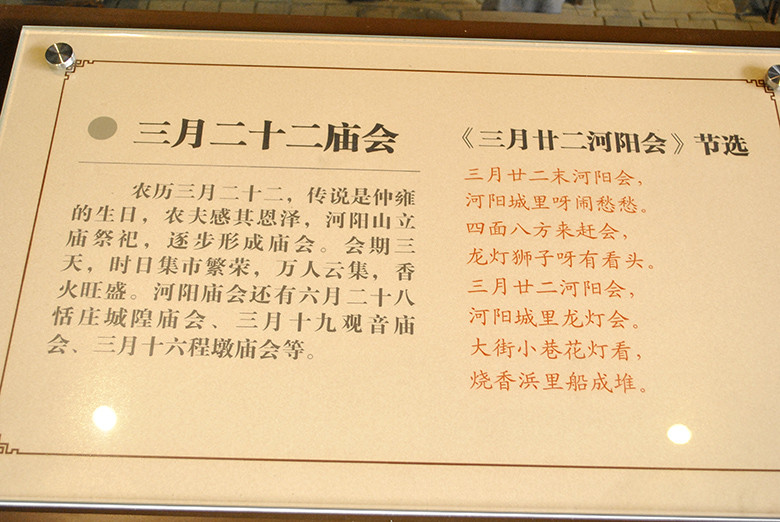 三月二十二庙会
农历三月二十二，传说是仲雍
的生日，农夫感其恩泽，河阳山立
庙祭祀，逐步形成庙会。会期三
天，时日集市繁荣，万人云集，香
火旺盛。河阳庙会还有六月二十八
恬庄城隍庙会、三月十九观音庙
会、三月十六程墩庙会等。
《三月廿二河阳会》节选
三月廿二末河阳会，
河阳城里呀闹愁愁。
四面八方来赶会，
龙灯狮子呀有看头。
三月廿二河阳会，
河阳城里龙灯会。
大街小巷花灯看，
烧香浜里船成堆。